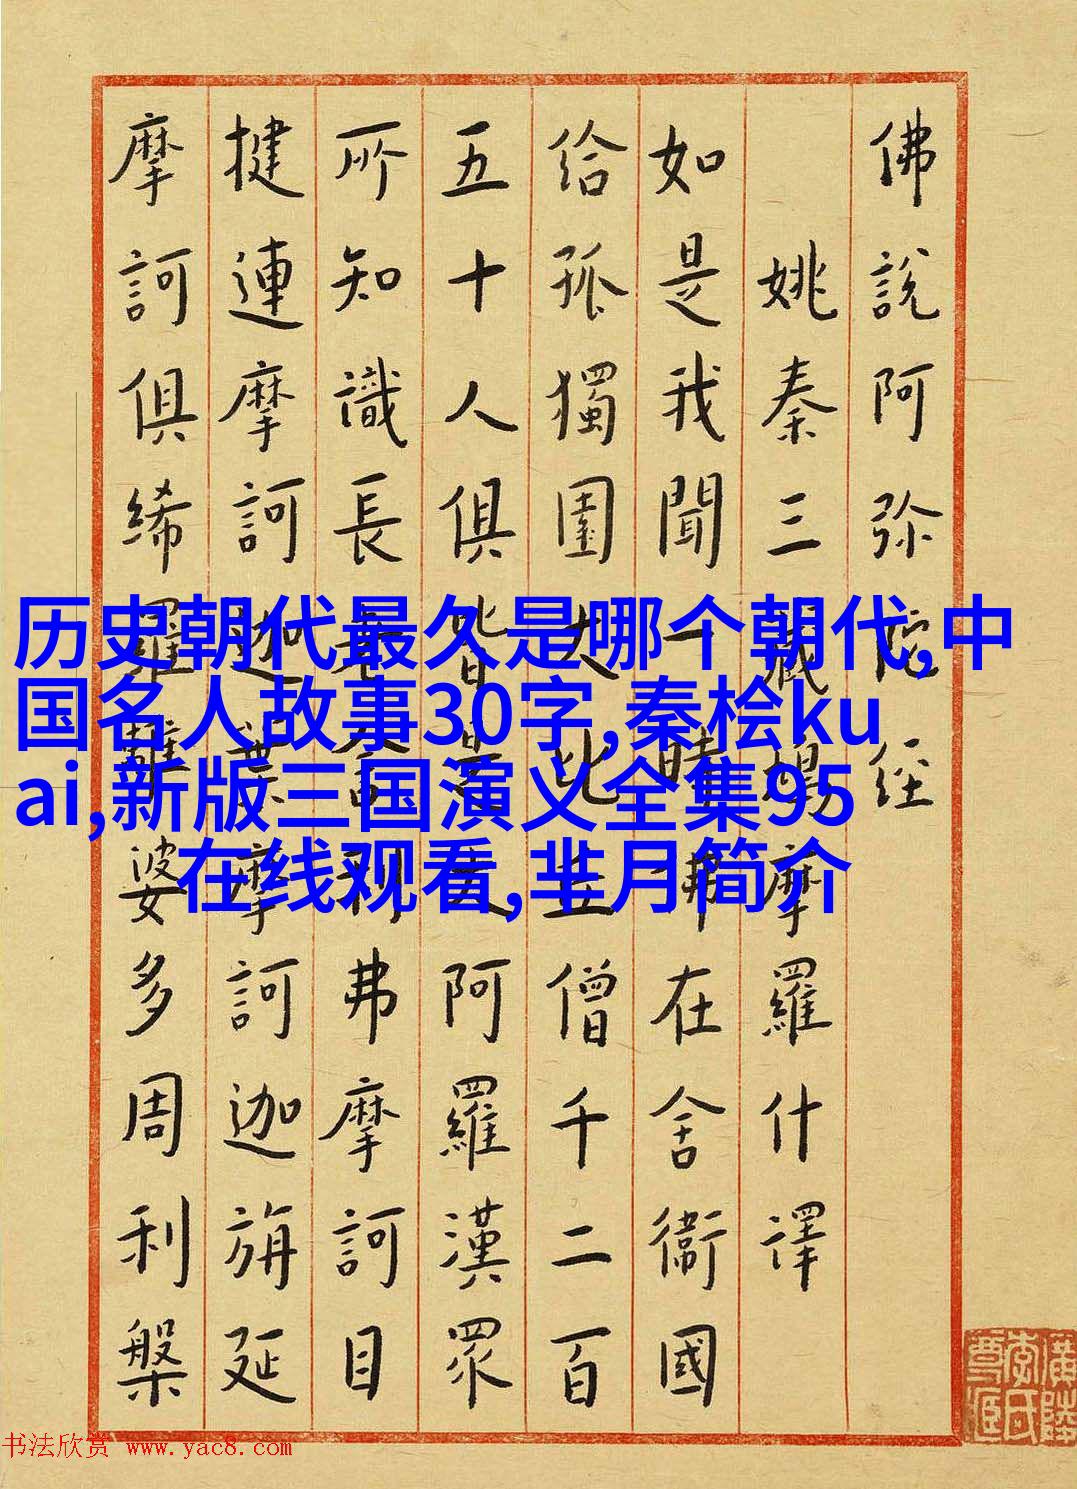 佛說阿弥陀經
姚秦三藏鳩摩羅什譯
如是我聞一時佛在舍衛國
給孤獨園大比丘僧千二百
五十人俱皆是大阿羅漢眾
所知識長老舍利弗摩訶目
揵連摩訶迦葉摩訶迦旃延
摩訶俱絺羅離婆多周利槃
历史朝代最久是哪个朝代,中
国名人故事30字,秦桧ku
ai,新版三国演义全集95
在线观看,芈月简介
书法欣赏 www.yac8.com